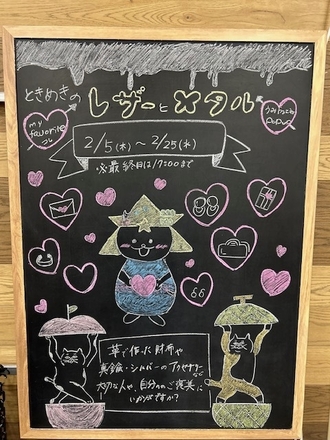 ときめきの レザーとメタル
my
favorite
コレ
2/5(木)～2/25(水)
※最終日は17:00まで
革で作った財布や
真鍮・シルバーのアクセサリーなど
大切な人や、自分へのご褒美に
いかがですか？